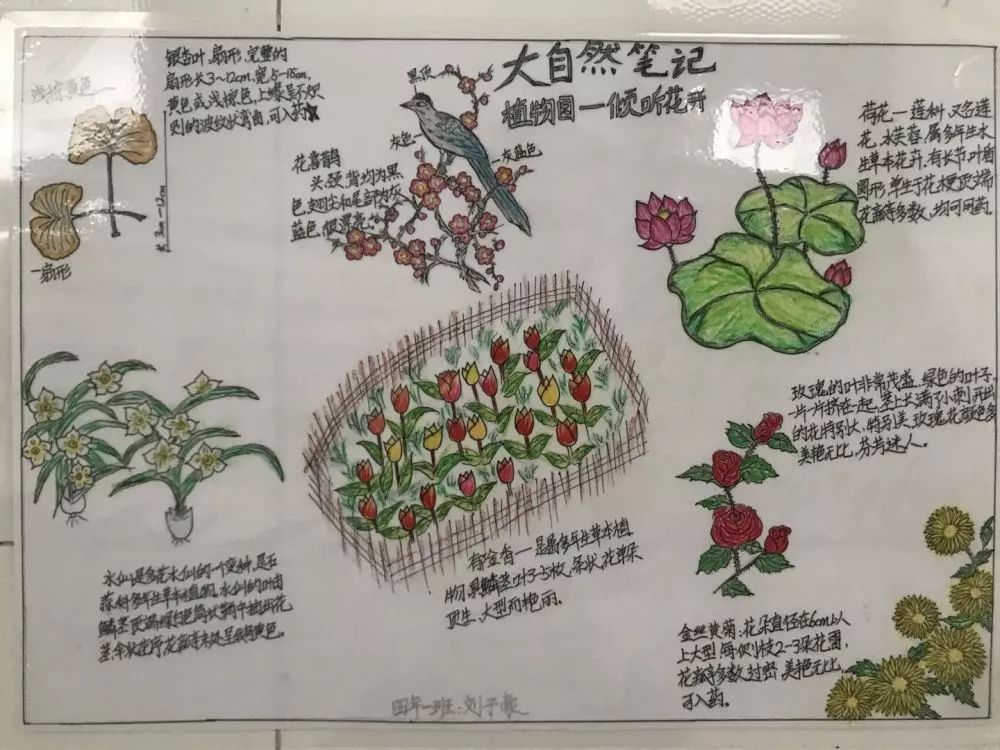 大自然笔记
植物园一倾听花开
浅棕黄色
银杏叶,扇形,完整的
扇形长3~12cm,宽5-15cm,
黄色或浅棕色,上缘呈不规
则的波纹状弯曲,可入药
长 3cm—12cm
一扇形
黑顶一
灰色一
一灰蓝色
花喜鹊
头、颈、背均为黑
色,翅尖和尾部为灰
蓝色,很漂亮。
荷花一莲科,又名莲
花、水芙蓉,属多年生水
生草本花卉,有长节,叶盾
圆形,单生于花梗顶端
花瓣多数,均可用药。
玫瑰的叶非常茂盛,绿色的叶子,
一片一片挤在一起,茎上长满了小刺,开出
的花特别大,特别美,玫瑰花颜色多
美艳无比,芬芳迷人。
水仙是多花水仙的一个变种,是石
蒜科多年生草本植物,水仙的叶由
鳞茎顶端绿白色筒状鞘中抽出花
茎,伞状花序,花瓣末处呈黄色。
郁金香一是属多年生草本植
物,具鳞茎,叶3-5枚,条状,花单朵
顶生,大型而艳丽。
金丝黄菊:花朵直径在6cm以
上大型,每侧枝2-3朵花蕾,
花瓣多数,过密,美艳无比,
可入药。
四年一班:刘子豪